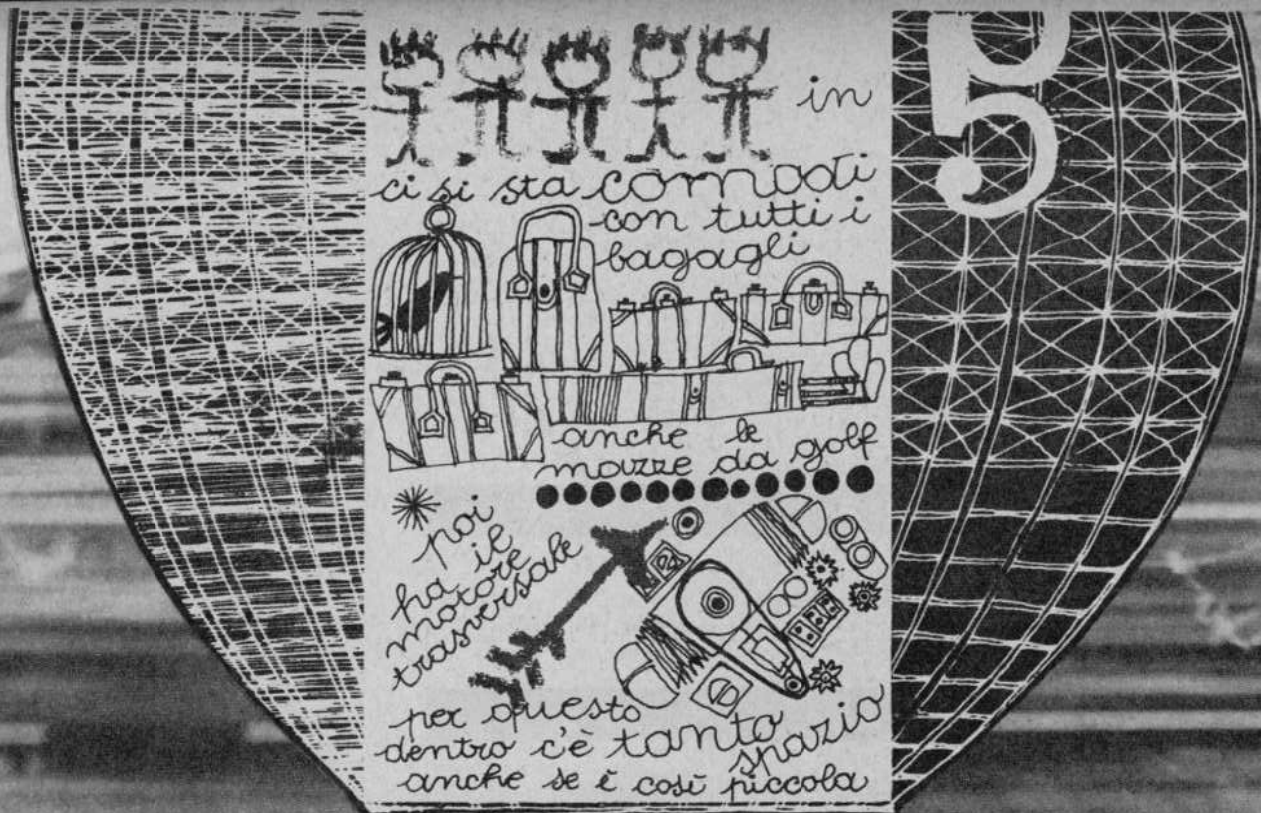 in 5
ci si sta comodi
con tutti i
bagagli
anche le
mazze da golf
poi
ha il
motore
trasversale
per questo
dentro c'è tanto spazio
anche se è così piccola